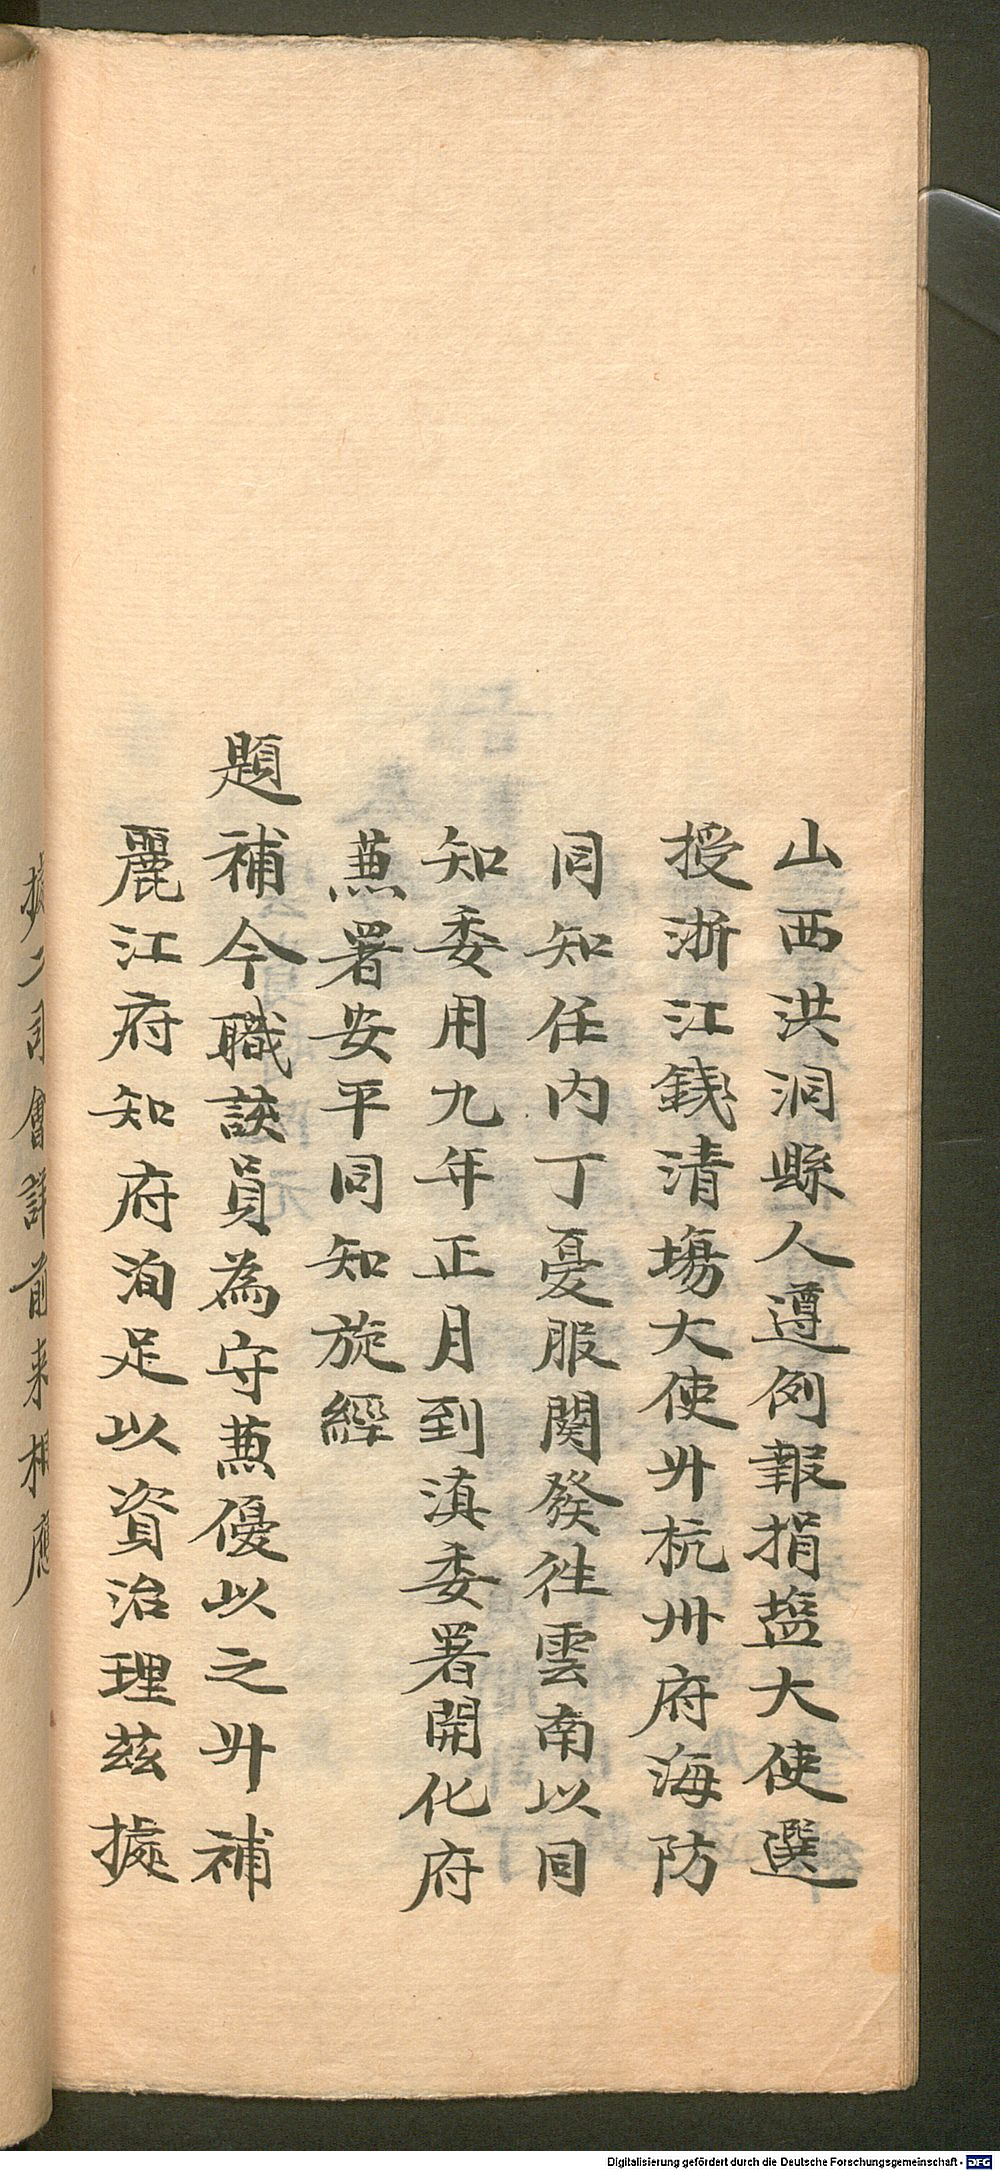 山西洪洞縣人遵例報捐塩大使選
授浙江錢清塲大使升杭州府海防
同知任内丁憂服闋發徃雲南以同
知委用九年正月到滇委署開化府
蒸署安平同知旋經
題補今職該員為守蒸優以之升補
麗江府知府洵足以資治理茲㨿
㨿二司會詳前来相應
Digitalisierung gefördert durch die Deutsche Forschungsgemeinschaft - DFG